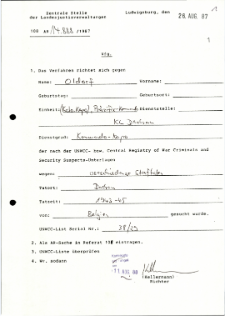 1
Zentrale Stelle
der Landesjustizverwaltungen
Ludwigsburg, den 26. AUG. 87
109 AR /1987
Vfg.
1. Das Verfahren richtet sich gegen
Name: Oldorf Vorname:
Geburtstag: Geburtsort:
Einheit/ Dienststelle:
KL Dachau
Dienstgrad:
der nach der UNWCC- bzw. Central Registry of War Criminals and
Security Suspects-Unterlagen
wegen: verschiedener
Tatort: Dachau
Tatzeit: 1942-45
von: Belgien gesucht wurde.
UNWCC-List Serial Nr.:
2. Als AR-Sache in Referat eintragen.
3. UNWCC-Liste überprüfen
4. Wv. sodann
AUG. 1987
(Kellermann)
Richter